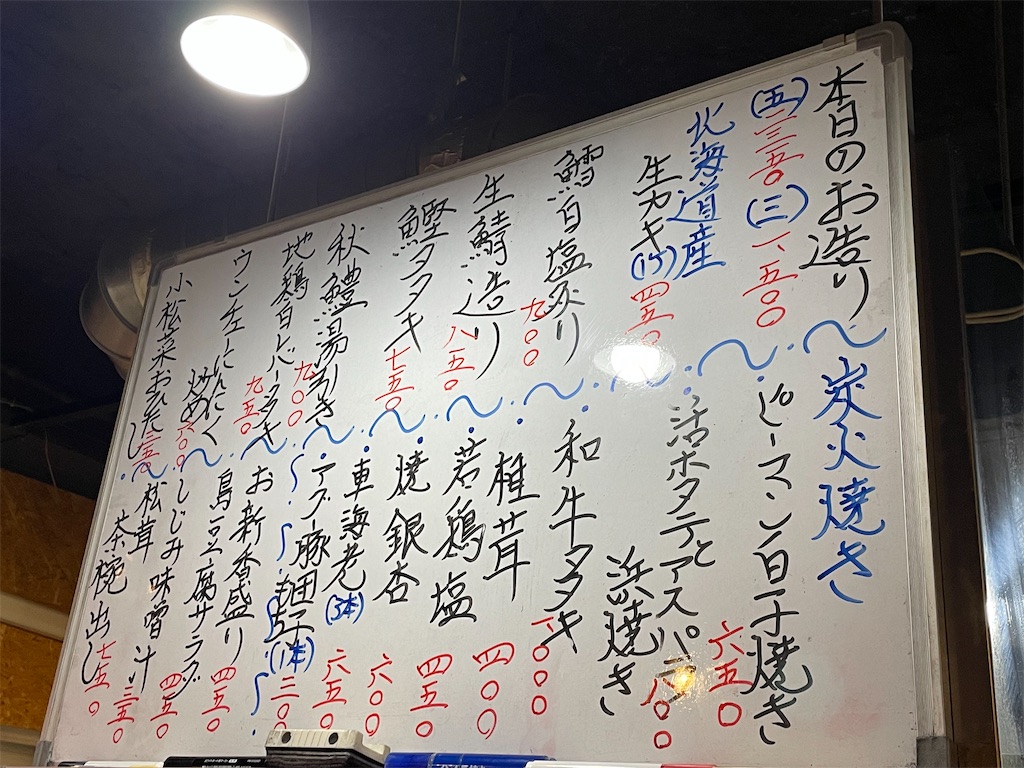 本日のお造り
(五)二三五〇 (三)一、五〇〇
北海道産
生カキ(1ケ) 四五〇
鱈白塩炙り 九〇〇
生鯖造り 八五〇
鰹タタキ 七五〇
秋鱧湯引き 九〇〇
地鶏白レバータタキ 九五〇
ウンチェーにんにく
炒め 六〇〇
小松菜おひたし 三五〇
炭火焼き
ピーマン白子焼き 六五〇
活ホタテとアスパラ
浜焼き 八〇〇
和牛タタキ 一、〇〇〇
椎茸 四〇〇
若鶏塩 四五〇
焼銀杏 六〇〇
車海老(3本) 六五〇
アグー豚田楽(1本) 三〇〇
お新香盛り 四五〇
島豆腐サラダ 四五〇
しじみ味噌汁 三五〇
松茸
茶椀出し 七五〇